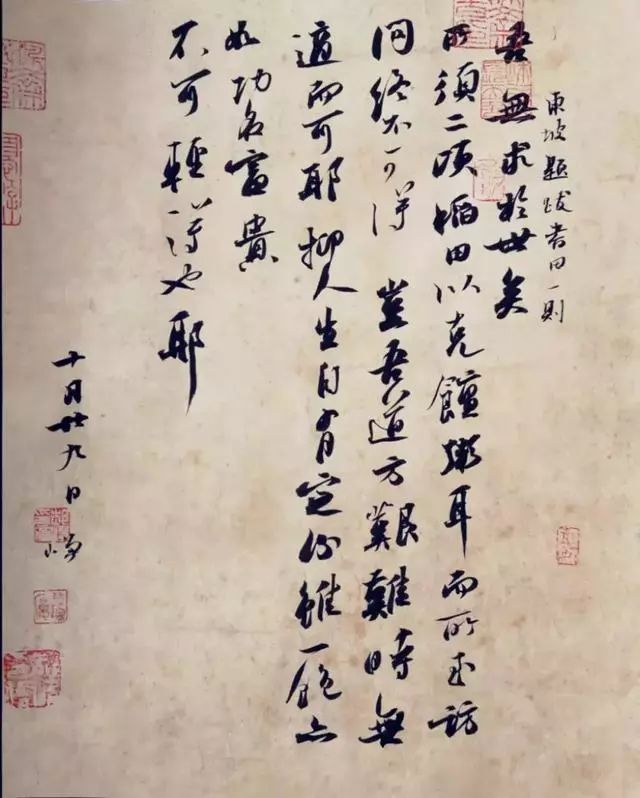 東坡題跋書田一則
吾無求於世矣
所須二頃稻田以充饘粥耳而所至訪
問終不可得 豈吾道方艱難時無
適而可耶抑人生自有定分雖一飽亦
如功名富貴
不可輕得也耶
十月廿九日